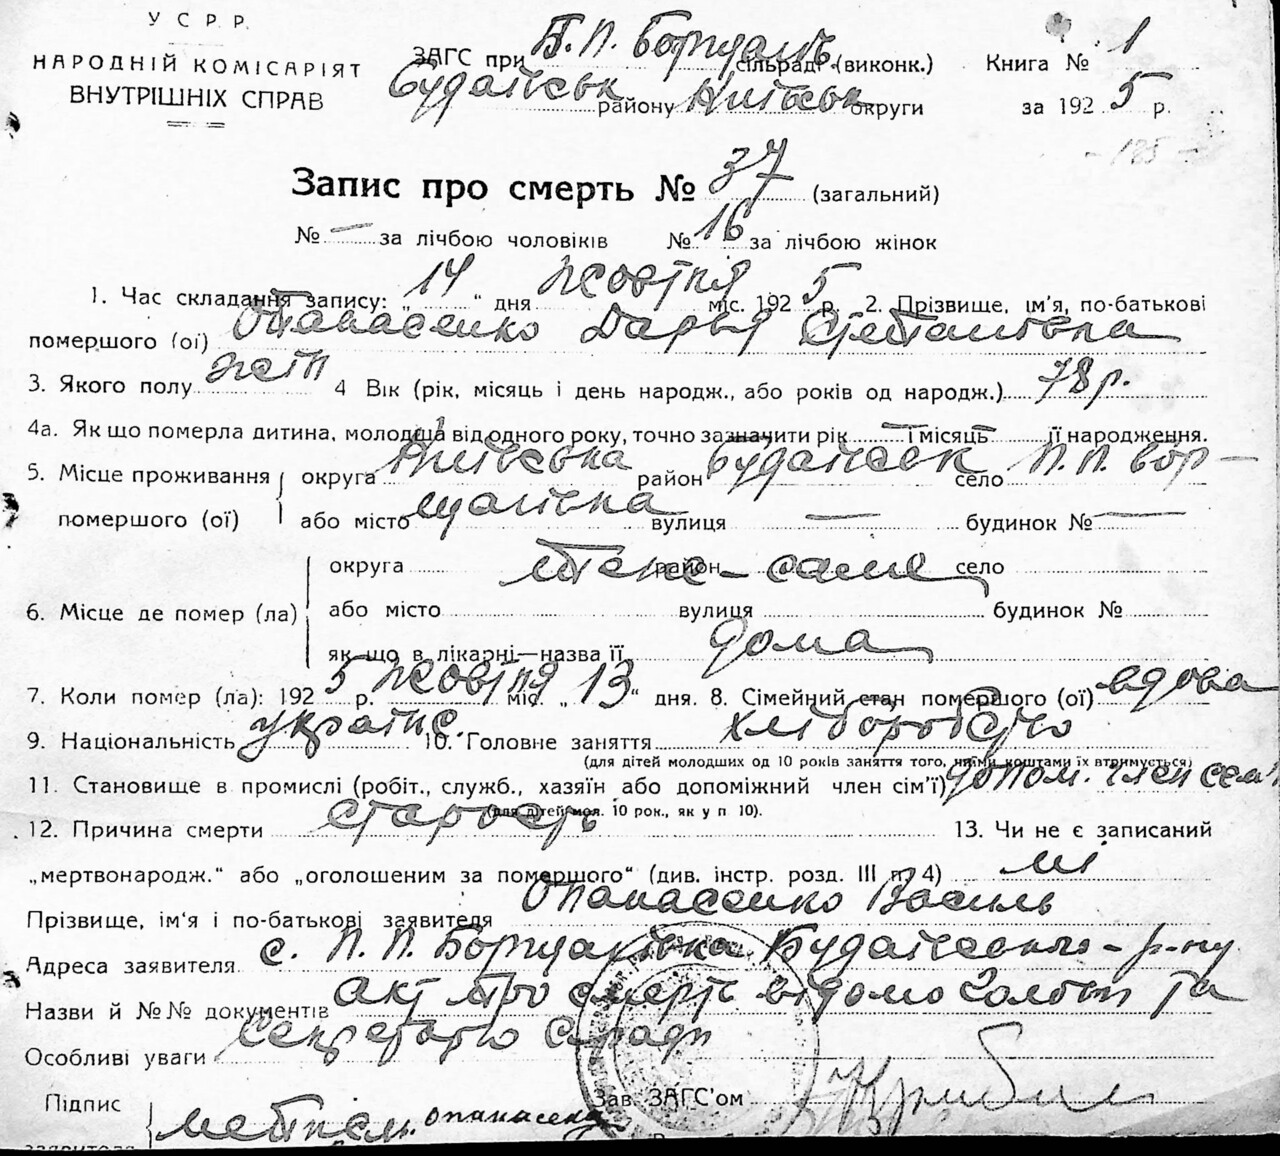 У С Р. Р.
НАРОДНІЙ КОМІСАРІЯТ
ВНУТРІШНІХ СПРАВ
ЗАГС при П. П. Борщагів сільраді (виконк.)
Будаївськ району Київськ округи
Книга № 1
за 1925 р.
- 185 -
Запис про смерть № 37 (загальний)
№ — за лічбою чоловіків № 16 за лічбою жінок
1. Час складання запису: „14“ дня Жовтня міс. 1925 р. 2. Прізвище, ім'я, по-батькові
помершого (ої) Опанасенко Дарья Степанівна
3. Якого полу жін 4 Вік (рік, місяць і день народж., або років од народж.) 78 р.
4а. Як що померла дитина, молодша від одного року, точно зазначити рік і місяць її народження.
5. Місце проживання помершого (ої) округа Київська район Будаївськ село П. П. Бор-
щагівка або місто вулиця — будинок № —
6. Місце де помер (ла) округа теж-саме район село
або місто вулиця будинок №
як що в лікарні—назва її дома
7. Коли помер (ла): 1925 р. Жовтня міс. „13“ дня. 8. Сімейний стан помершого (ої) вдова
9. Національність україн. 10. Головне заняття хліборобство
(для дітей молодших од 10 років заняття того, чиїми коштами їх втримується)
11. Становище в промислі (робіт., служб., хазяїн або допоміжний член сім'ї) допом. член сем'ї
(для дітей мол. 10 рок., як у п 10).
12. Причина смерти старость 13. Чи не є записаний
„мертвонародж.“ або „оголошеним за помершого“ (див. інстр. розд. III п. 4) ні
Прізвище, ім'я і по-батькові заявителя Опанасенко Василь
Адреса заявителя с. П. П. Борщагівка Будаївського р-ну
Назви й №№ документів акт про смерть відомо Голові та
Особливі уваги Секретарю С/ради
Підпис заявителя Опанасенко
Зав. ЗАГС'ом